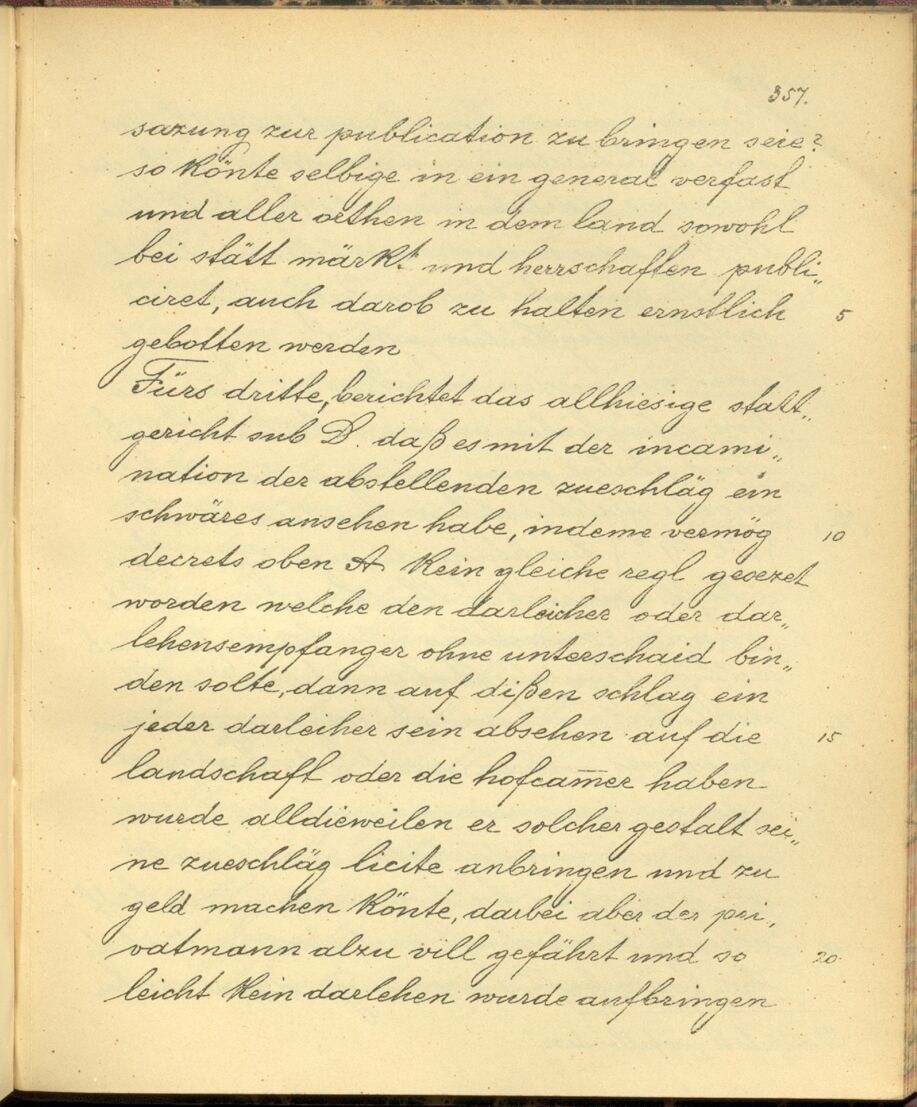 357.
sazung zur publication zu bringen seie?
so könte selbige in ein general verfast
und aller orthen in dem land sowohl
bei stätt märkt und herrschaften publi„
ciret, auch darob zu halten ernstlich 5
gebotten werden
Fürs dritte, berichtet das allhiesige statt„
gericht sub D. daß es mit der incami„
nation der abstellenden zueschläg ein
schwäres ansehen habe, indeme vermög 10
decrets oben A kein gleiche regl gesezet
worden welche den darleicher oder dar„
lehensempfanger ohne unterschaid bin„
den solte, dann auf dißen schlag ein
jeder darleiher sein absehen auf die 15
landschaft oder die hofcam̅er haben
wurde alldieweilen er solcher gestalt sei„
ne zueschläg licite anbringen und zu
geld machen könte, darbei aber der pri„
vatmann alzu vill gefährt und so 20
leicht kein darlehen wurde aufbringen